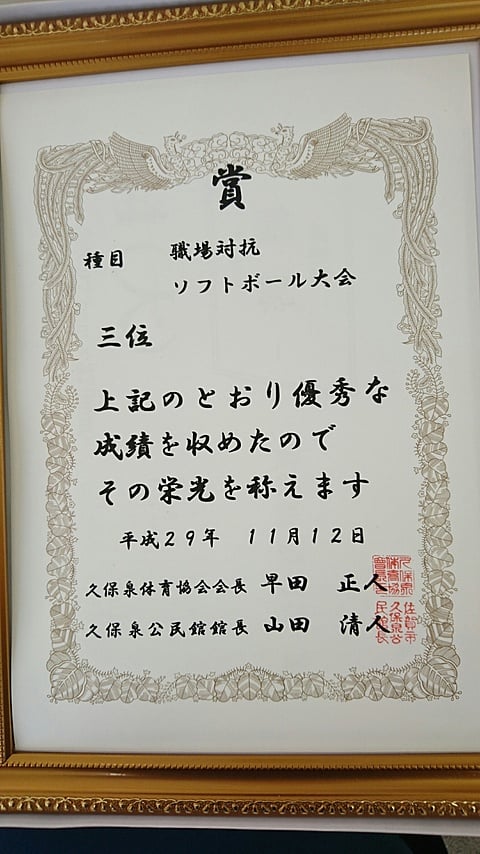 賞
種目 職場対抗
ソフトボール大会
三位
上記のとおり優秀な
成績を収めたので
その栄光を称えます
平成29年 11月12日
久保泉体育協会会長 早田 正人
久保泉公民館館長 山田 清人
久保泉
体育協
会長印
佐賀市
久保泉公
民館長